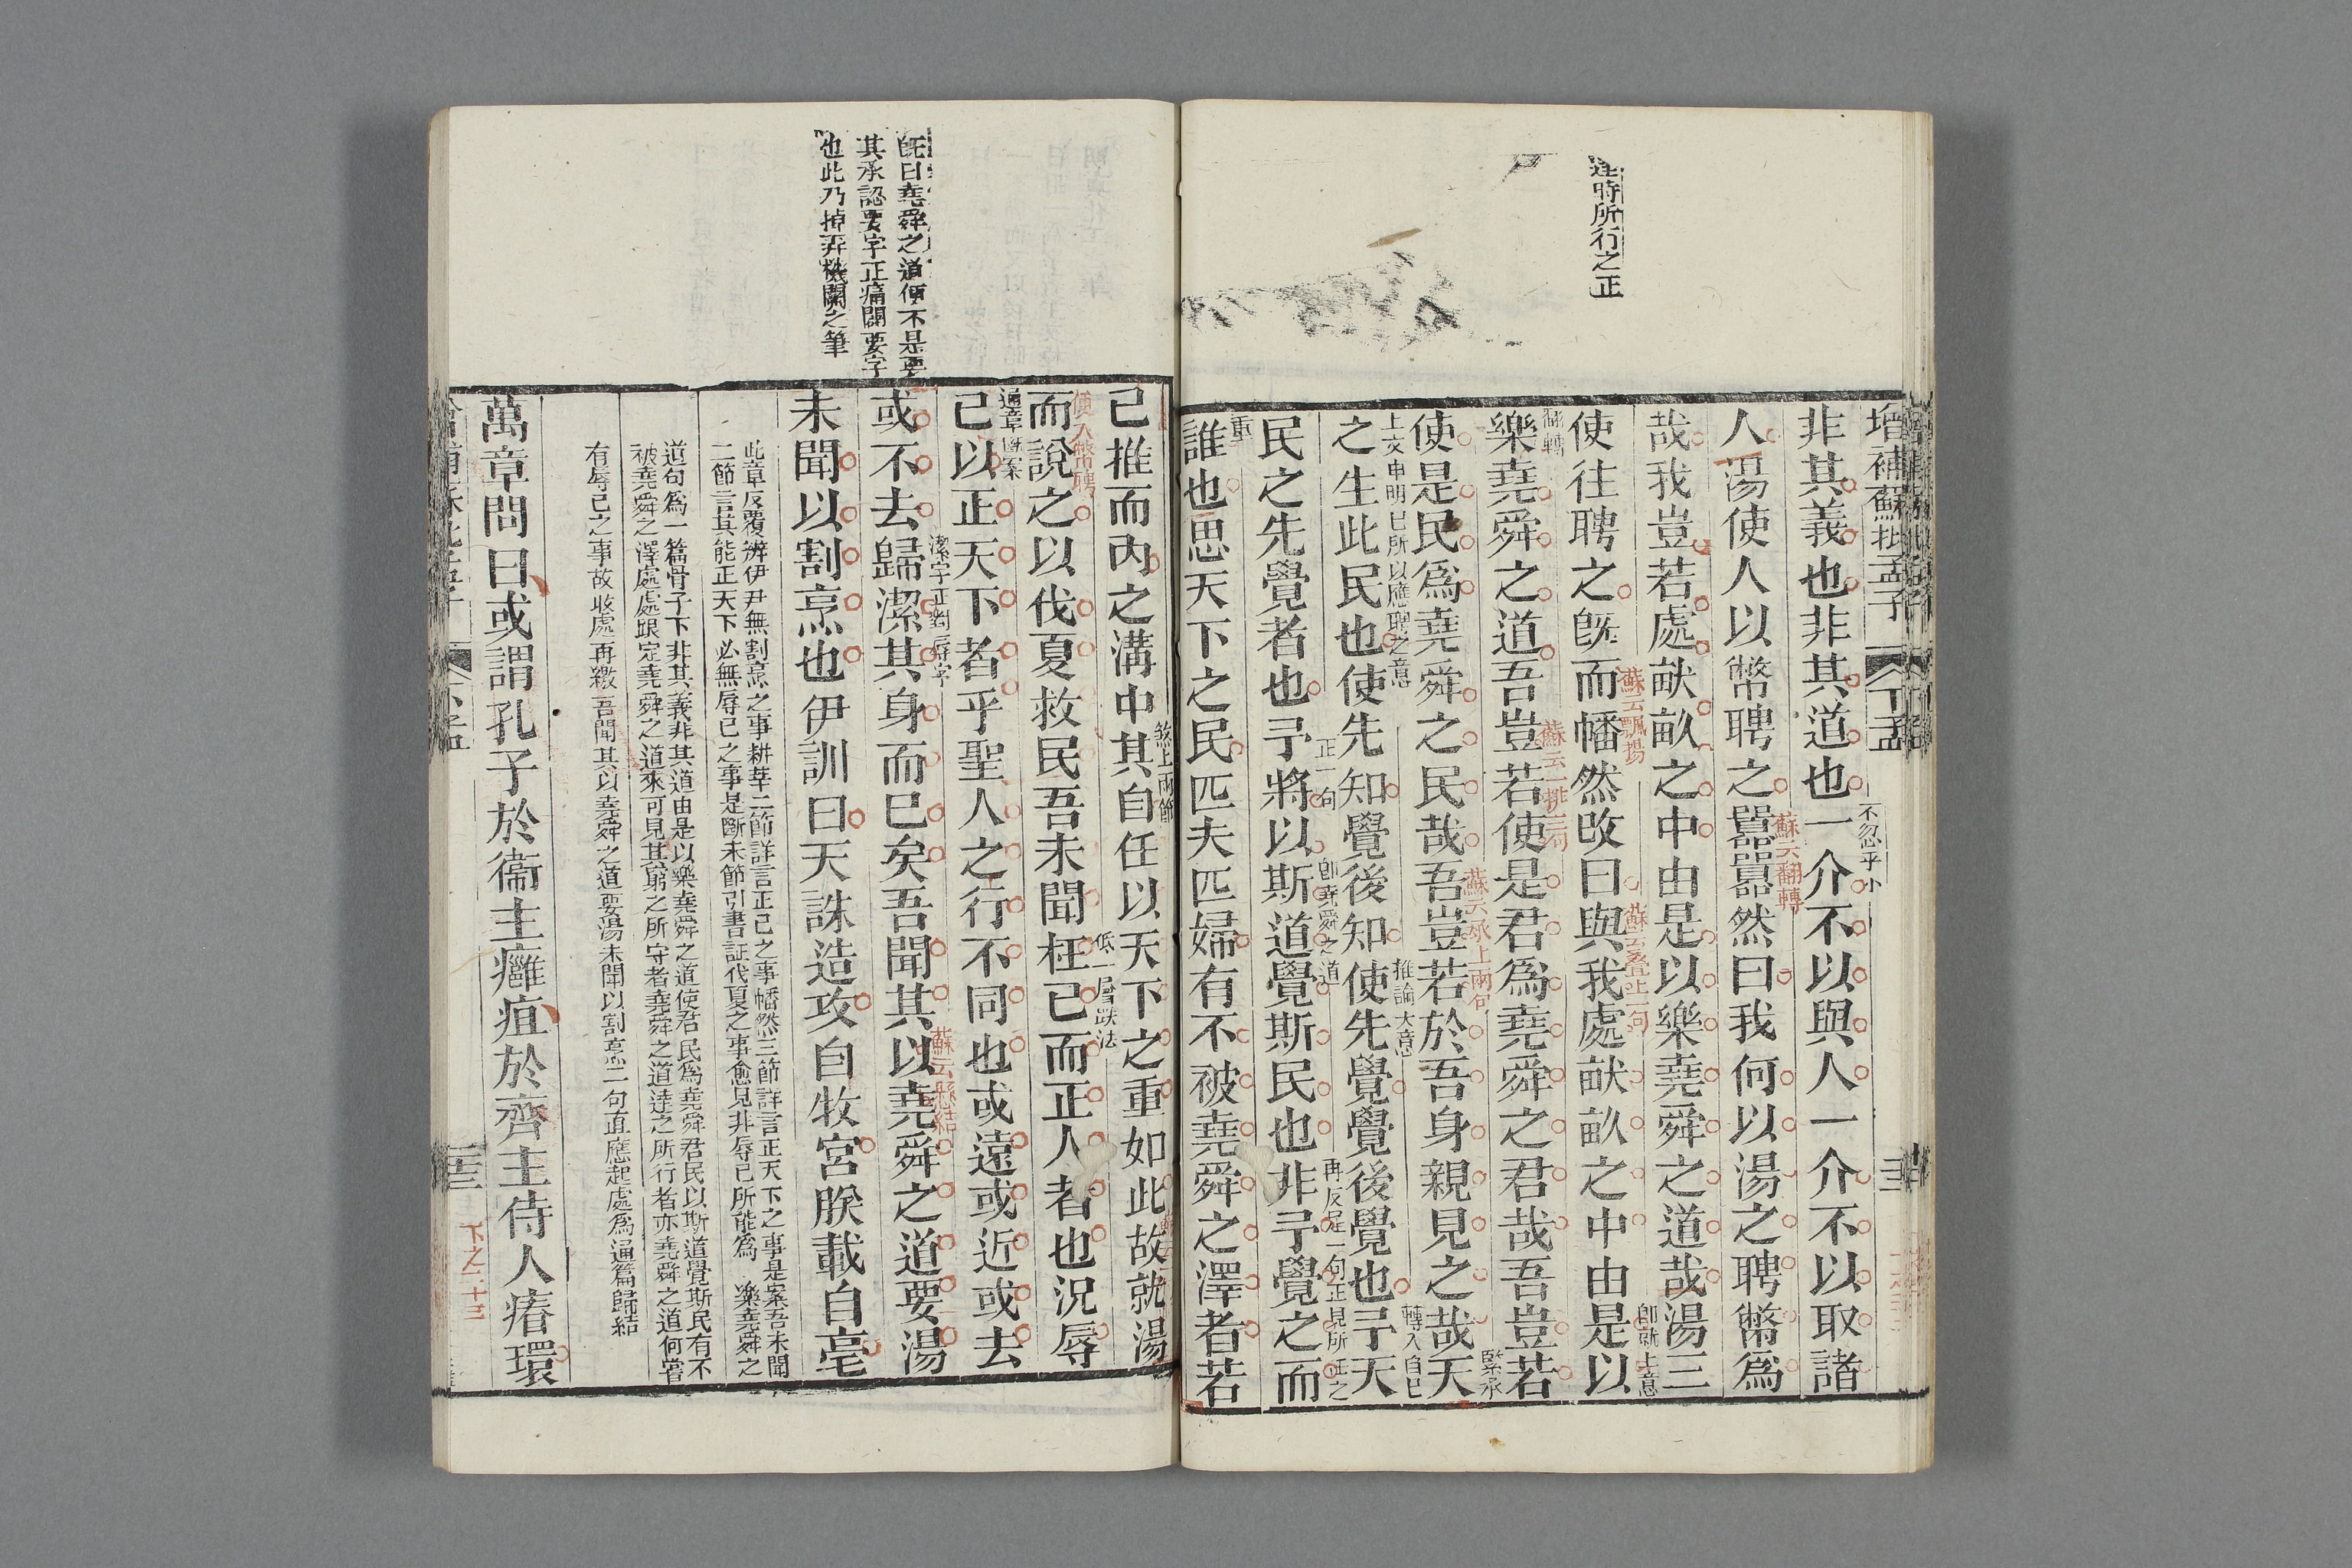 達時所行之正
增補蘇批孟子 下孟
非其義也非其道也一介不以與人一介不以取諸
不忽乎小
人湯使人以幣聘之囂囂然曰我何以湯之聘幣爲
蘇云翻轉
哉我豈若處畎畝之中由是以樂堯舜之道哉湯三
使往聘之旣而幡然改曰與我處畎畝之中由是以
蘇云飄揚
蘇云叠上一句
卽就上意
翻轉
樂堯舜之道吾豈若使是君爲堯舜之君哉吾豈若
蘇云一排三句
使是民爲堯舜之民哉吾豈若於吾身親見之哉天
蘇云承上兩句
緊承
上文申明已所以應聘之意
之生此民也使先知覺後知使先覺覺後覺也予天
推論大意
轉入自己
民之先覺者也予將以斯道覺斯民也非予覺之而
正一句
卽堯舜之道
再反足一句正見所任之
重
誰也思天下之民匹夫匹婦有不被堯舜之澤者若
旣曰堯舜之道便不是要
其承認要字正痛闢要字
也此乃掉弄機關之筆
己推而內之溝中其自任以天下之重如此故就湯
煞上兩節
便入幣聘
而說之以伐夏救民吾未聞枉己而正人者也況辱
低一層跌法
通章斷案
己以正天下者乎聖人之行不同也或遠或近或去
潔字正對辱字
或不去歸潔其身而已矣吾聞其以堯舜之道要湯
蘇云懸結
未聞以割烹也伊訓曰天誅造攻自牧宮朕載自亳
此章反覆辨伊尹無割烹之事耕莘二節詳言正己之事幡然三節詳言正天下之事是案吾未聞
二節言其能正天下必無辱己之事是斷末節引書証伐夏之事愈見非辱己所能爲 樂堯舜之
道句爲一篇骨子下非其義非其道由是以樂堯舜之道使君民爲堯舜君民以斯道覺斯民有不
被堯舜之澤處處跟定堯舜之道來可見其窮之所守者堯舜之道達之所行者亦堯舜之道何嘗
有辱己之事故收處再繳吾聞其以堯舜之道要湯未聞以割烹二句直應起處爲通篇歸結
萬章問曰或謂孔子於衞主癰疽於齊主侍人瘠環
下之二十三